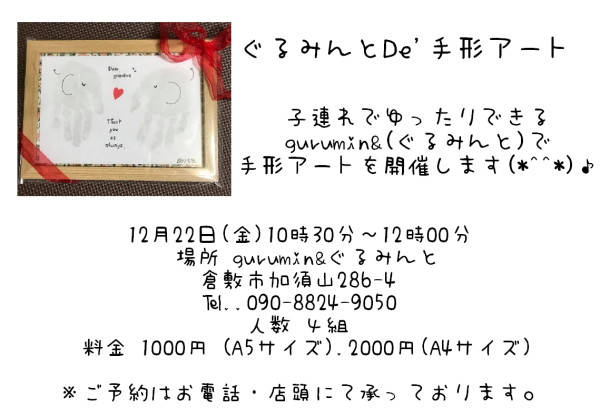 ぐるみんとDe'手形アート
Dear
grandma
Thank
you
as
always.
子連れでゆったりできる
gurumin&(ぐるみんと)で
手形アートを開催します(*^^*)♪
12月22日(金)10時30分〜12時00分
場所 gurumin&ぐるみんと
倉敷市加須山286-4
℡..090-8824-9050
人数 4組
料金 1000円 (A5サイズ).2000円(A4サイズ)
※ご予約はお電話・店頭にて承っております。